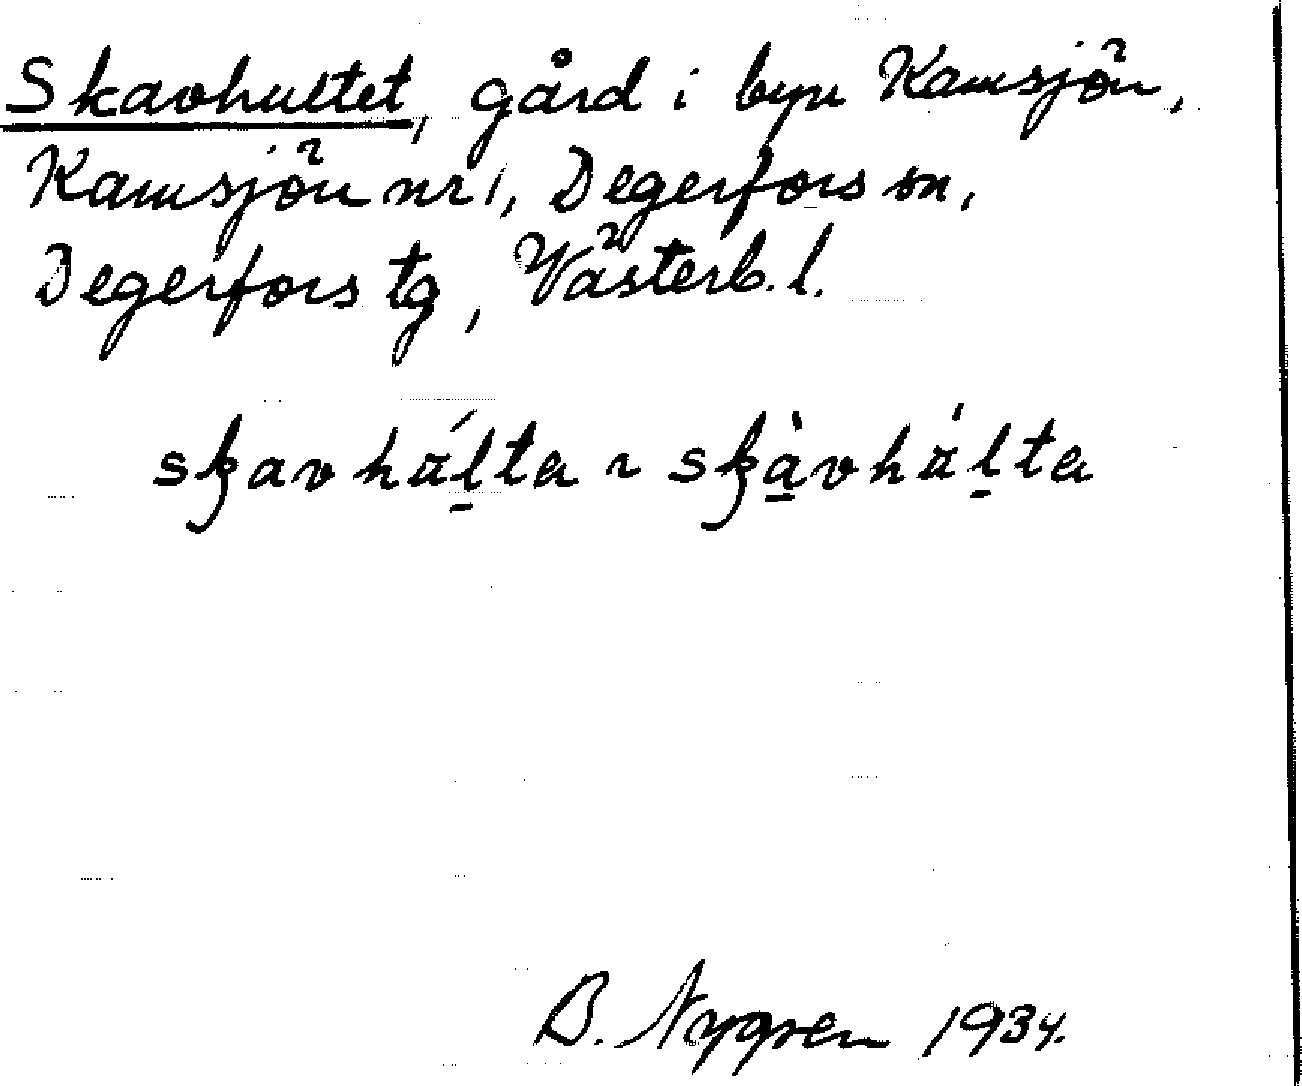 Skavhultet, gård i byn Kamsjön,
Kamsjön nr 1, Degerfors sn,
Degerfors tg, Västerb. l.
skavhál̠ta ~ skà̠vhál̠ta
B. Nygren 1934.